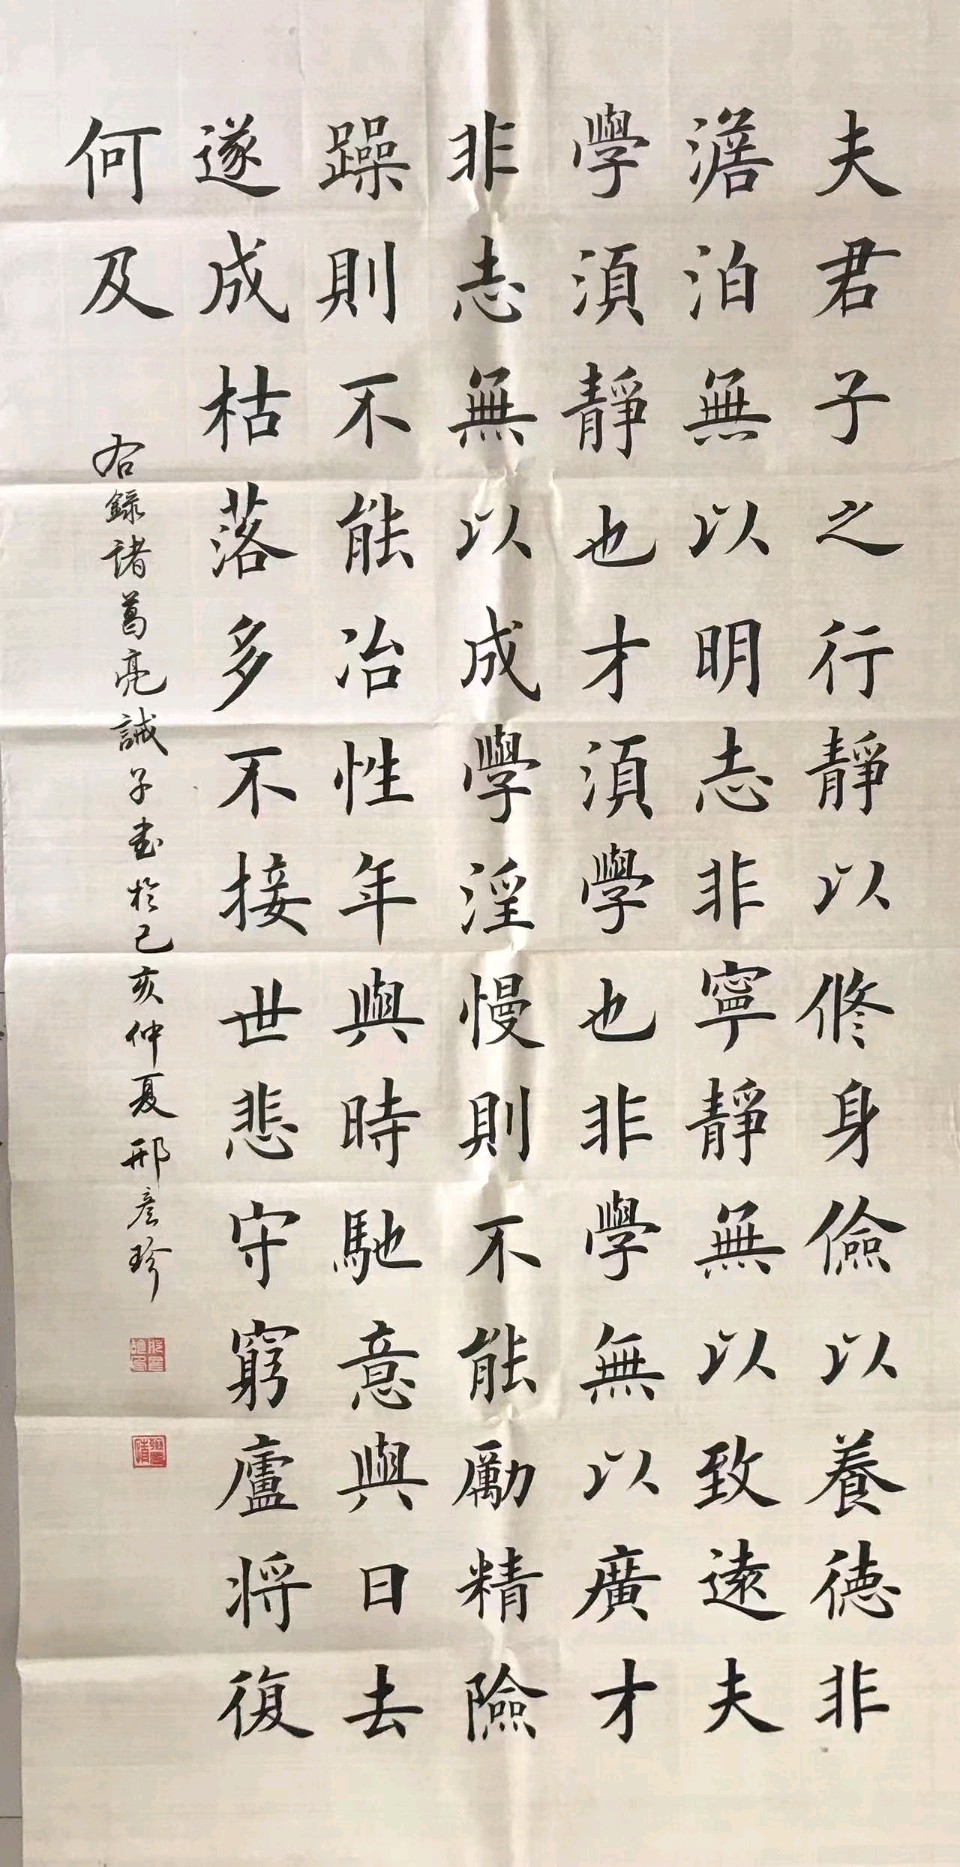 夫君子之行靜以修身儉以養德非
澹泊無以明志非寧靜無以致遠夫
學須靜也才須學也非學無以廣才
非志無以成學淫慢則不能勵精險
躁則不能冶性年與時馳意與日去
遂成枯落多不接世悲守窮廬將復
何及
右錄諸葛亮誡子書於己亥仲夏邢彥珍